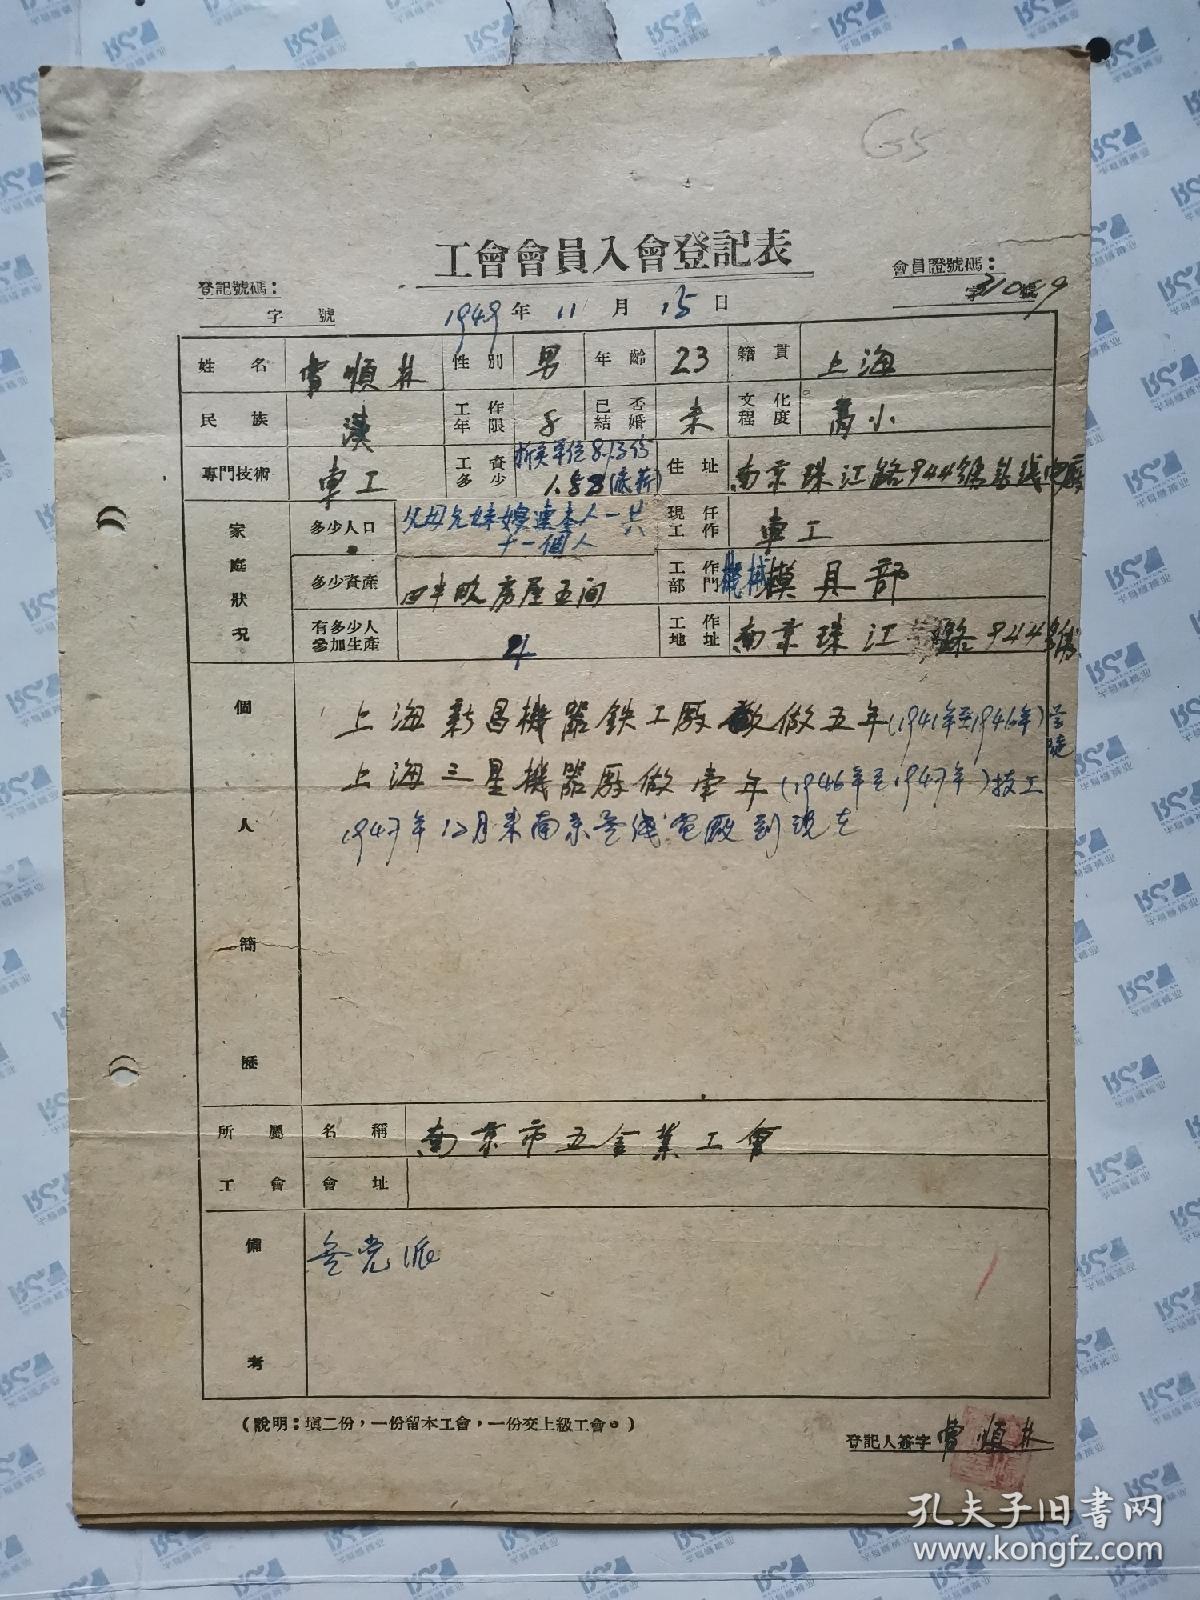 G5
工會會員入會登記表
登記號碼：
字 號
會員證號碼：
字31049號
1949年11月15日
姓名 順林 性別 男 年齡 23 籍貫 上海
民族 漢 工作年限 8 已否結婚 未 文化程度 高小
專門技術 車工 工資多少 折实单位8.13份 (底薪) 住址 南京珠江路944號無线电廠
家庭狀況
多少人口 父母兄妹嫂連本人一共十一個人 現任工作 車工
多少資產 四半畝房屋五间 工作部門 機械模具部
有多少人參加生產 4 工作地址 南京珠江路944號
個人簡歷
上海新昌機器鉄工厰做五年(1941年至1946年)
上海三星機器厰做壹年(1946年至1947年)技工
1947年12月来南京無线電廠到现在
所屬工會 名稱 南京市五金業工會
會址
備考
無党派
(說明：填二份，一份留本工會，一份交上級工會。)
登記人簽字 順林
孔夫子旧書网
www.kongfz.com